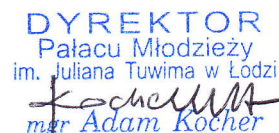 DYREKTOR
Pałacu Młodzieży
im. Juliana Tuwima w Łodzi
mgr Adam Kocher